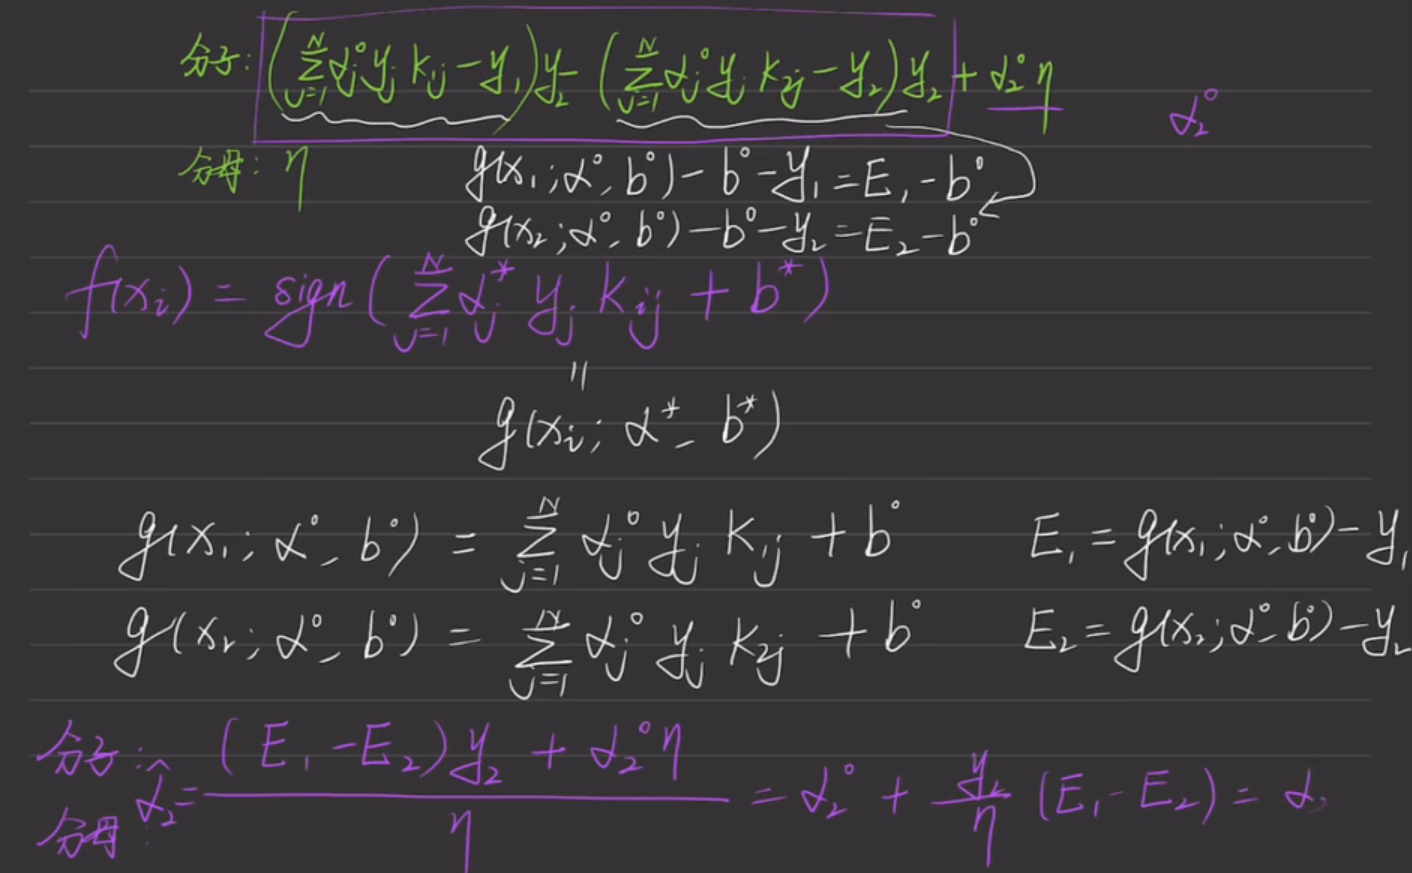 分子: (∑_{j=1}^{N} α_j° y_j K_{1j} - y_1) y_2 - (∑_{j=1}^{N} α_j° y_j K_{2j} - y_2) y_2 + α_2° η
α_2°
分母: η
g(x_1; α°, b°) - b° - y_1 = E_1 - b°
g(x_2; α°, b°) - b° - y_2 = E_2 - b°
f(x_i) = sign(∑_{j=1}^{N} α_j^* y_j K_{ij} + b^*)
=
g(x_i; α^*, b^*)
g(x_1; α°, b°) = ∑_{j=1}^{N} α_j° y_j K_{1j} + b° E_1 = g(x_1; α°, b°) - y_1
g(x_2; α°, b°) = ∑_{j=1}^{N} α_j° y_j K_{2j} + b° E_2 = g(x_2; α°, b°) - y_2
分子: (E_1 - E_2) y_2 + α_2° η
α̂_2 = ―― = α_2° + y_2/η (E_1 - E_2) = α
分母: η